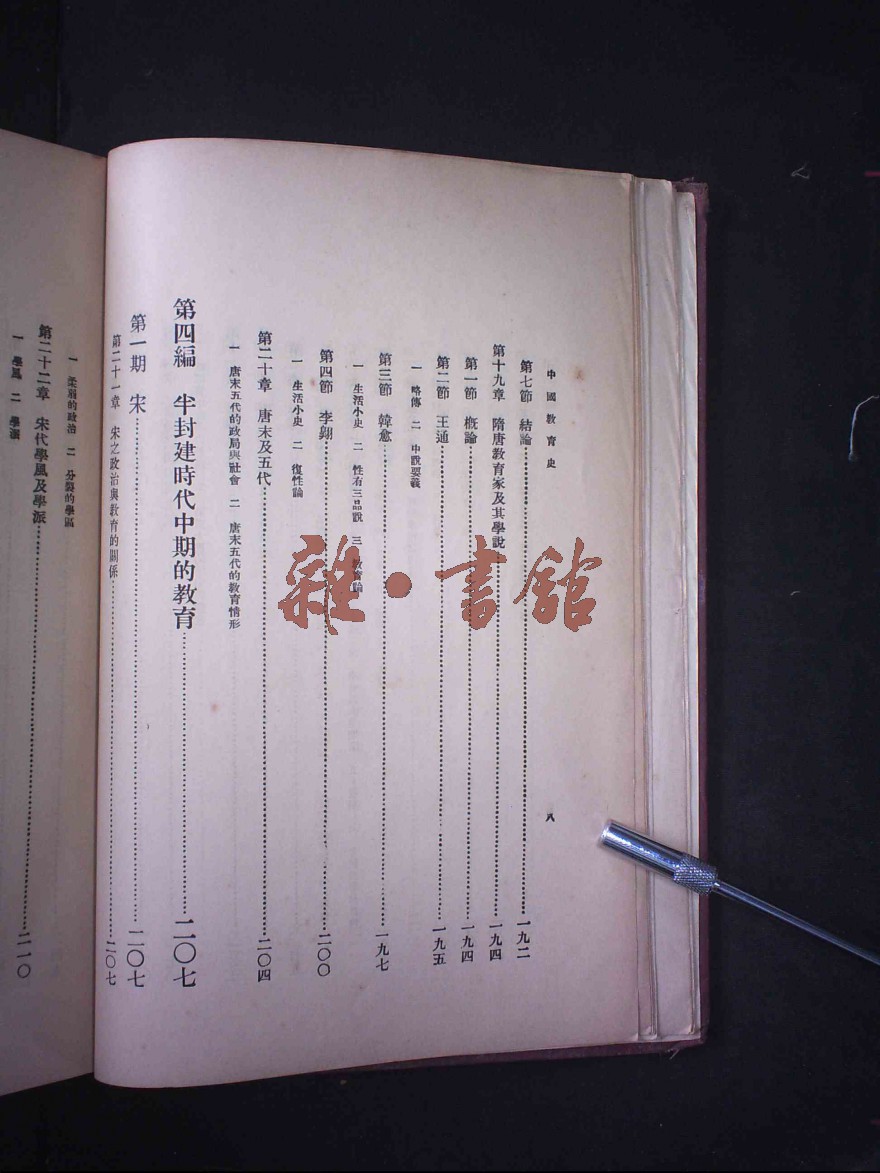 中國教育史
八
第七節 結論 一九二
第十九章 隋唐教育家及其學說 一九四
第一節 概論 一九四
第二節 王通 一九五
一 略傳 二 中說要義
第三節 韓愈 一九七
一 生活小史 二 性有三品說 三 教育論
第四節 李翱 二〇〇
一 生活小史 二 復性論
第二十章 唐末及五代 二〇四
一 唐末五代的政局與社會 二 唐末五代的教育情形
第四編 半封建時代中期的教育 二〇七
第一期 宋 二〇七
第二十一章 宋之政治與教育的關係 二〇七
一 柔弱的政治 二 分裂的學區
第二十二章 宋代學風及學派 二一〇
一 學風 二 學派
雜·書館